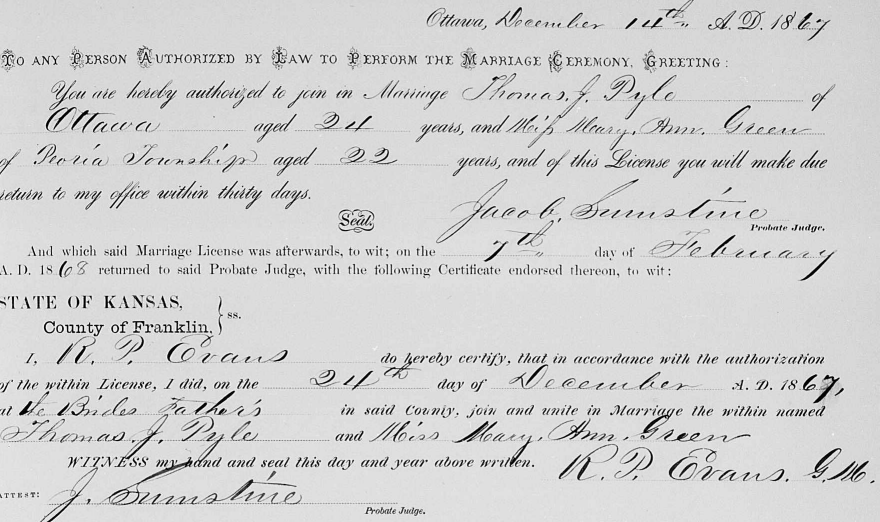 Ottawa, December 14th A.D. 1867
TO ANY PERSON AUTHORIZED BY LAW TO PERFORM THE MARRIAGE CEREMONY, GREETING:
You are hereby authorized to join in Marriage Thomas. J. Pyle of
Ottawa aged 24 years, and Miss Mary, Ann. Green
of Peoria Township aged 22 years, and of this License you will make due
return to my office within thirty days.
Jacob. Sumstine
Seal.
Probate Judge.
And which said Marriage License was afterwards, to wit; on the 7th day of February
A. D. 1868 returned to said Probate Judge, with the following Certificate endorsed thereon, to wit:
STATE OF KANSAS,
County of Franklin, } ss.
I, R. P. Evans do hereby certify, that in accordance with the authorization
of the within License, I did, on the 24th day of December A. D. 1867,
at the Brides Father's in said County, join and unite in Marriage the within named
Thomas. J. Pyle and Miss Mary, Ann. Green
WITNESS my hand and seal this day and year above written. R. P. Evans. G. M.
ATTEST: J. Sumstine
Probate Judge.